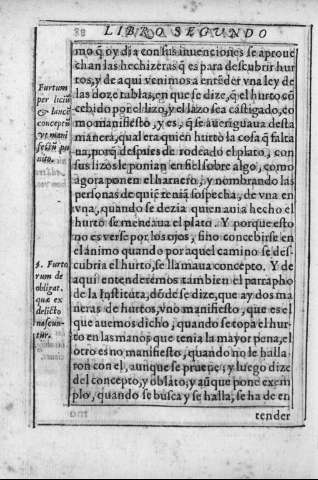 LIBRO SEGUNDO
mo q̃ oy dia con sus inuenciones se aproue
chan las hechizeras q̃ es para descubrir hur
tos, y de aqui venimos a entẽder vna ley de
las doze tablas, en que se dize, q̃ el hurto cõ
cebido por el lizo, y el lazo sea castigado, co
mo manifiesto, y es, q̃ se aueriguaua desta
manera, qual era quien hurtò la cosa q̃ falta
ua, porq̃ despues de rodeado el plato, con
sus lizos le ponian en fiel sobre algo, como
agora ponen el harnero, y nombrando las
personas de quiẽ teniã sospecha, de vna en
vna, quando se dezia quien auia hecho el
hurto se meneaua el plato. Y porque esto
no es verse por los ojos, sino concebirse en
el ánimo quando por aquel camino se des-
cubria el hurto, se llamaua concepto. Y de
aqui entenderémos tambien el parrapho
de la Instituta, dõde se dize, que ay dos ma
neras de hurtos, vno manifiesto, que es el
que auemos dicho, quando se topa el hur-
to en las manos que tenia la mayor pena, el
otro es no manifiesto, quando no le halla-
ron con el, aunque se prueue; y luego dize
del concepto, y oblato; y aũque pone exem
plo, quando se busca y se halla, se ha de en
tender
Furtum
per liciũ
& lancẽ
conceptũ
vt mani
festũ pu
nito.
§. Furto
rum de
obligat.
quæ ex
delicto
nascun-
tur.